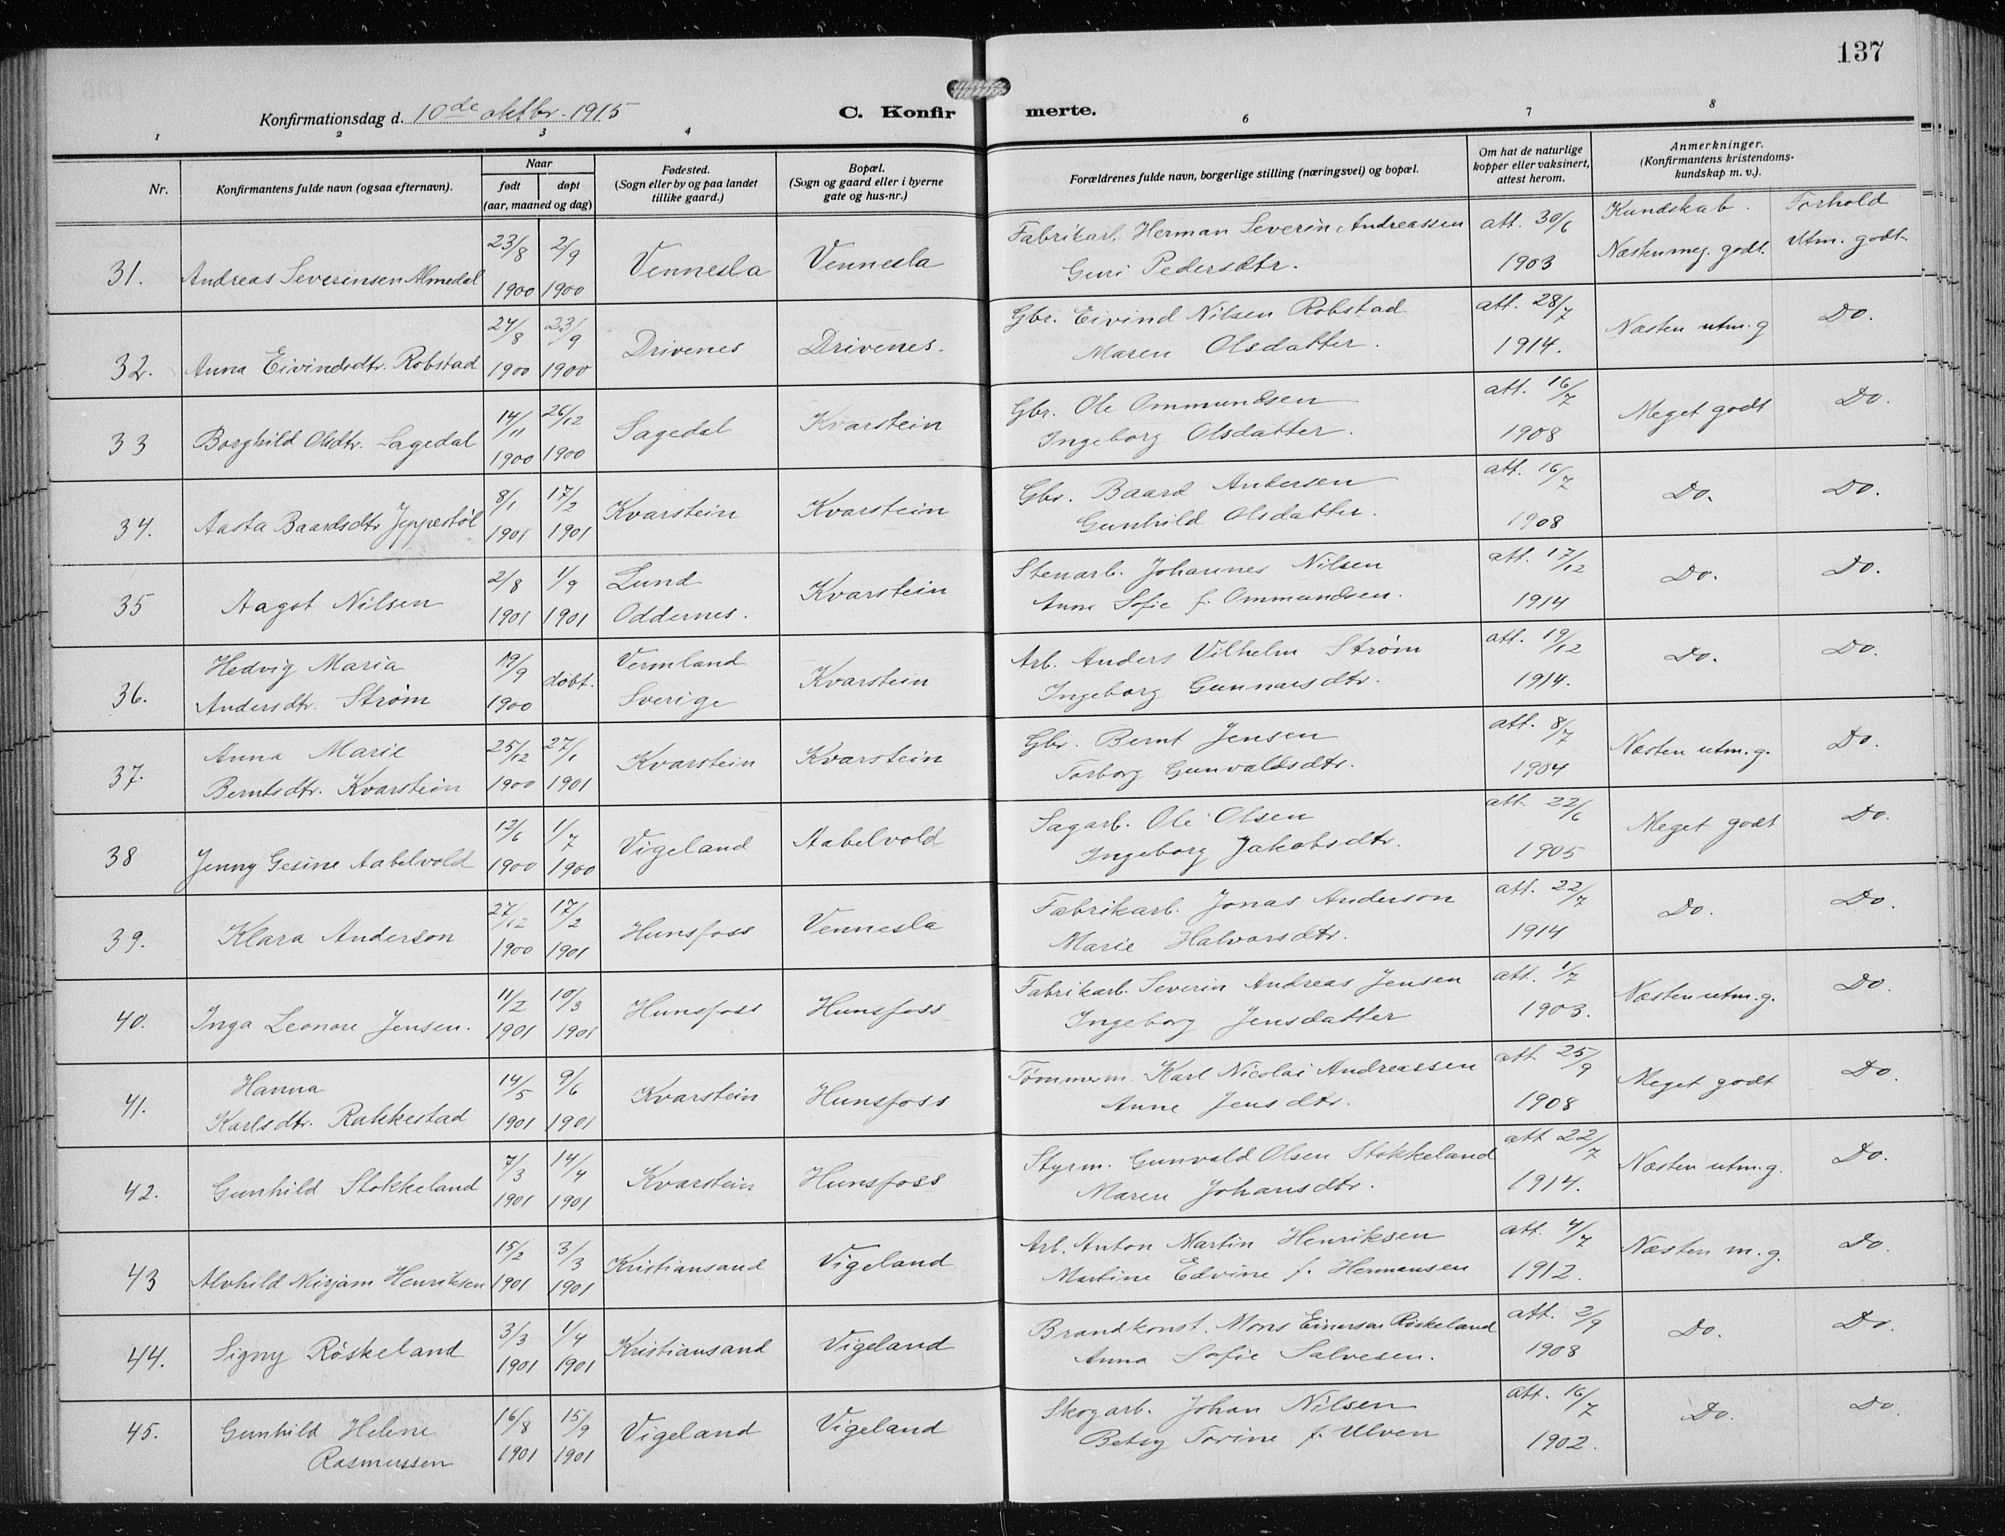 137
Konfirmationsdag d. 10de oktbr. 1915
C. Konfirmerte.
1 2 3 4 6 7 8
Nr.
Konfirmantens fulde navn (ogsaa efternavn).
Naar
født døpt
(aar, maaned og dag)
Fødested.
(Sogn eller by og paa landet
tillike gaard.)
Bopæl.
(Sogn og gaard eller i byerne
gate og hus-nr.)
Forældrenes fulde navn, borgerlige stilling (næringsvei) og bopæl.
Om hat de naturlige
kopper eller vaksinert,
attest herom.
Anmerkninger.
(Konfirmantens kristendoms-
kundskap m. v.).
Kundskab. Forhold
31. Andreas Severinsen Almedal 23/8 1900 2/9 1900 Vennesla Vennesla
Fabrikarb. Herman Severin Andreassen
Guri Pedersdtr.
att. 30/6 1903 Næsten meg. godt. Utm. godt.
32. Anna Eivindsdtr. Robstad 24/8 1900 23/9 1900 Drivenes Drivenes.
Gbr. Eivind Nilsen Robstad
Maren Olsdatter.
att. 28/7 1914. Næsten utm. g Do.
33 Borghild Olsdtr. Sagedal 14/11 1900 26/12 1900 Sagedal Kvarstein
Gbr. Ole Ommundsen
Ingeborg Olsdatter.
att. 16/7 1908 Meget godt Do.
34. Aasta Baardsdtr Jeppestøl 8/1 1901 17/2 1901 Kvarstein Kvarstein
Gbr. Baard Andersen
Gunhild Olsdatter.
att. 16/7 1908 Do. Do.
35 Aagot Nilsen 2/8 1901 1/9 1901 Lund
Oddernes. Kvarstein
Stenarb. Johannes Nilsen
Anne Sofie f. Ommundsen.
att. 17/12 1914 Do. Do.
36. Hedvig Maria
Andersdtr. Strøm 19/9 1900 døbt. Vermland
Sverige Kvarstein
Arb. Anders Vilhelm Strøm
Ingeborg Gunnarsdtr.
att. 19/12 1914. Do. Do.
37. Anna Marie
Berntsdtr. Kvarstein 25/12 1900 27/1 1901 Kvarstein Kvarstein
Gbr. Bernt Jensen
Torborg Gunvaldsdtr.
att. 8/7 1904 Næsten utm. g. Do.
38 Jenny Gesine Aabelvold 12/6 1900 1/7 1900 Vigeland Aabelvold
Sagarb. Ole Olsen
Ingeborg Jakobsdtr.
att 22/6 1905 Meget godt Do.
39. Klara Anderson 27/12 1900 17/2 1901 Hunsfoss Vennesla
Fabrikarb. Jonas Anderson
Marie Halvorsdtr.
att. 22/7 1914 Do. Do.
40. Inga Leonore Jensen. 11/2 1901 10/3 1901 Hunsfoss Hunsfoss
Fabrikarb. Severin Andreas Jensen
Ingeborg Jensdatter
att. 1/7 1903. Næsten utm. g. Do.
41. Hanna
Karlsdtr. Rakkestad 14/5 1901 9/6 1901 Kvarstein Hunsfoss
Tømmerm. Karl Nicolai Andreassen
Anne Jensdtr.
att 25/9 1908 Meget godt Do.
42. Gunhild Stokkeland 7/3 1901 14/4 1901 Kvarstein Hunsfoss
Styrm. Gunvald Olsen Stokkeland
Maren Johansdtr.
att 22/7 1914. Næsten utm. g. Do.
43 Alvhild Mirjam Henriksen 15/2 1901 3/3 1901 Kristiansand Vigeland
Arb. Anton Martin Henriksen
Martine Edvine f. Hermansen
att. 4/7 1912. Næsten m. g. Do.
44. Signy Røskeland 3/3 1901 1/4 1901 Kristiansand Vigeland
Brandkonst. Mons Einarsen Røskeland
Anna Sofie Salvesen.
att. 2/9 1908 Do. Do.
45. Gunhild Helene
Rasmussen 16/8 1901 15/9 1901 Vigeland Vigeland
Skogarb. Johan Nilsen
Betsy Torine f. Ulven
att. 16/7 1902. Do. Do.